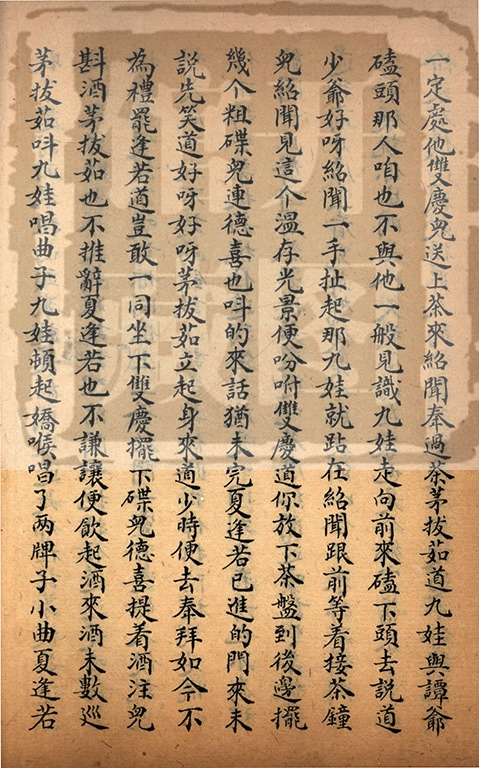 一定處他雙慶兒送上茶來紹聞奉過茶茅拔茹道九娃與譚爺
磕頭那人咱也不與他一般見識九娃走向前來磕下頭去説道
少爺好呀紹聞一手扯起那九娃就跕在紹聞跟前等着接茶鐘
兒紹聞見這个溫存光景便吩咐雙慶道你放下茶盤到後邊擺
幾个粗碟兒連德喜也呌的來話猶未完夏逢若已進的門來未
説先笑道好呀好呀茅拔茹立起身來道少時便去奉拜如今不
為禮罷逢若道豈敢一同坐下雙慶擺下碟兒德喜提着酒注兒
斟酒茅拔茹也不推辭夏逢若也不謙讓便飲起酒來酒未數巡
茅拔茹呌九娃唱曲子九娃頓起嬌喉唱了两牌子小曲夏逢若